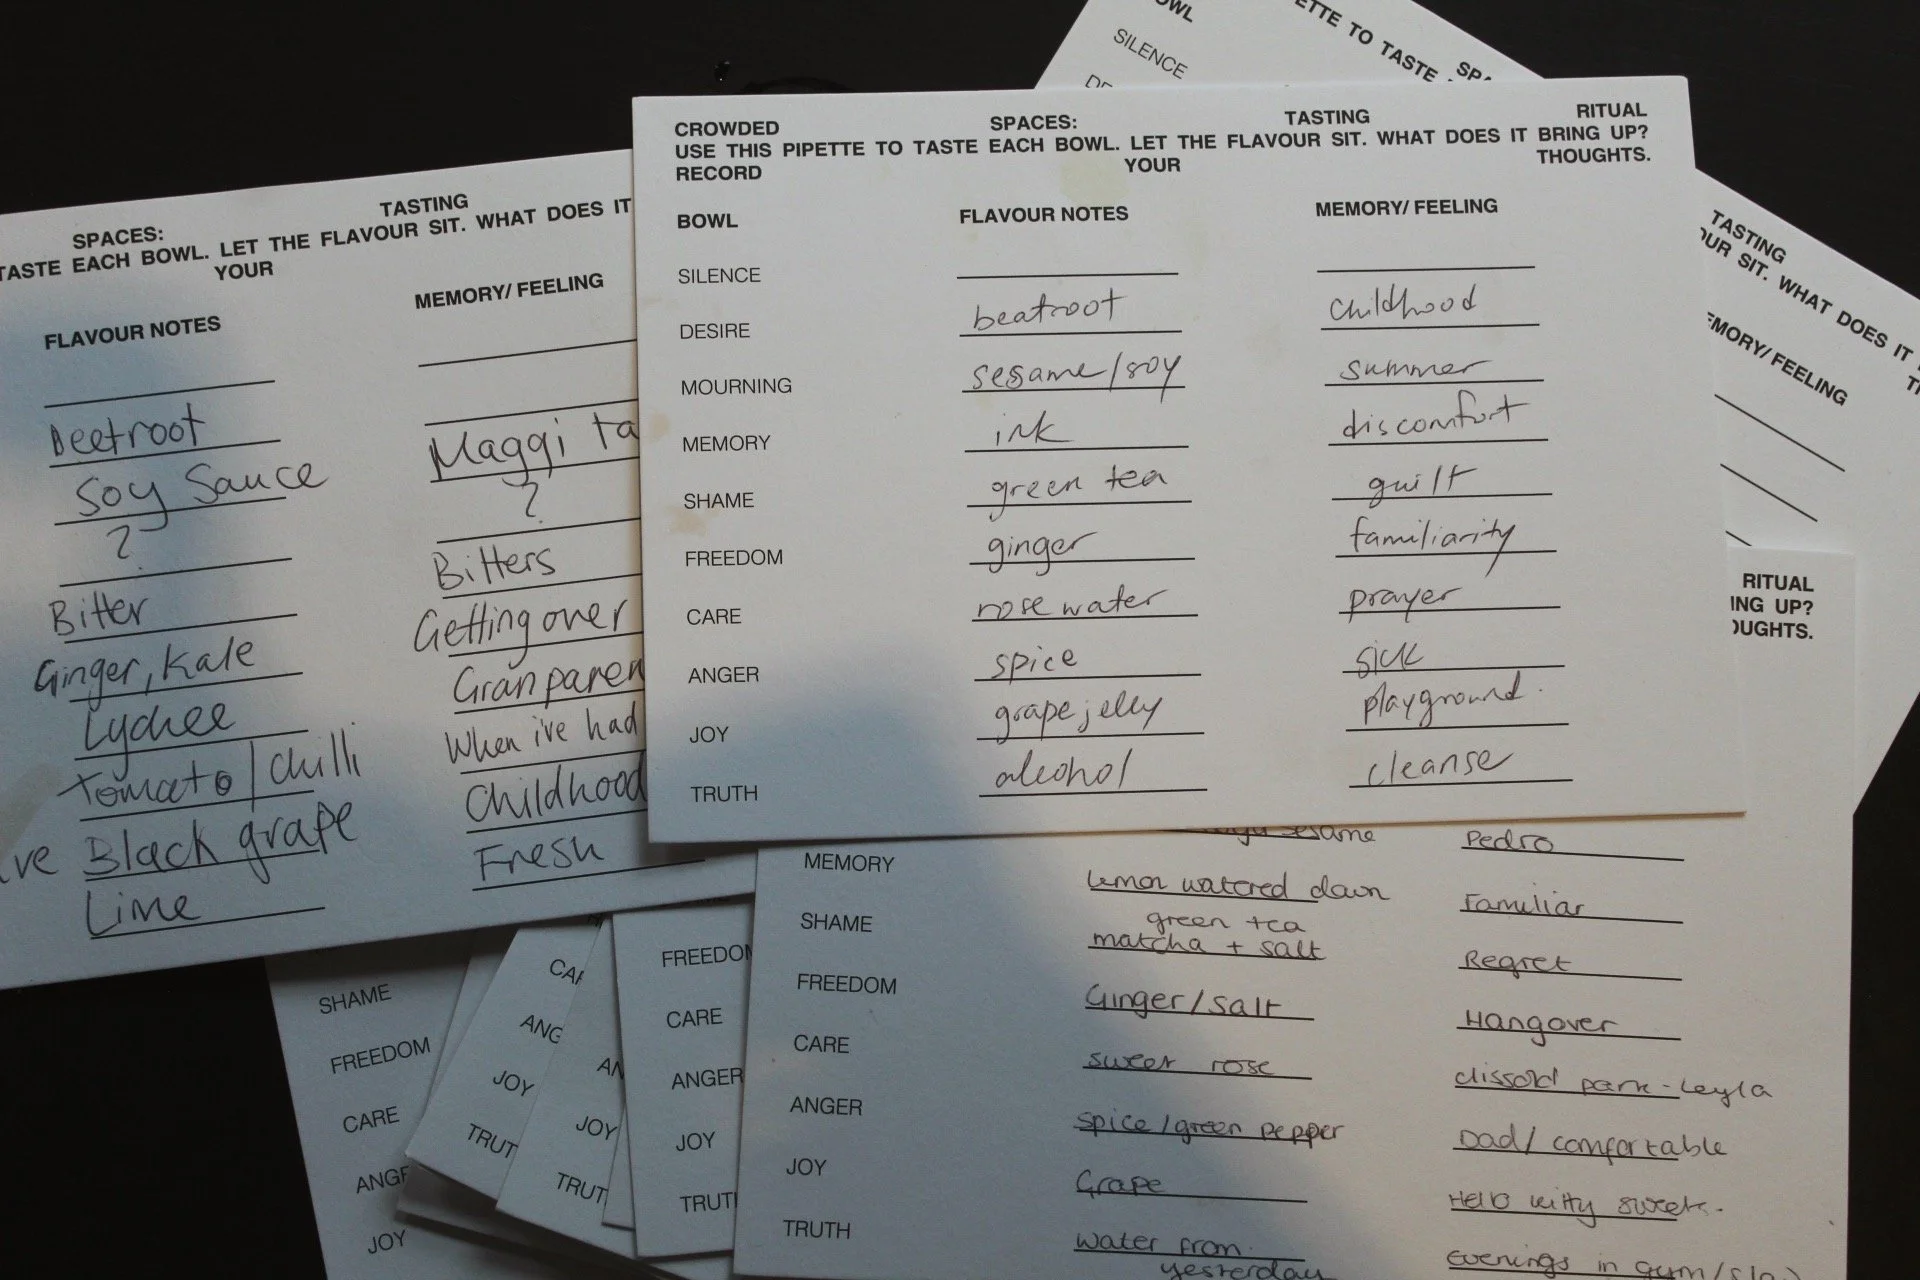 OWL
SILENCE
TO TASTE
CROWDED SPACES: TASTING RITUAL
USE THIS PIPETTE TO TASTE EACH BOWL. LET THE FLAVOUR SIT. WHAT DOES IT BRING UP?
RECORD YOUR THOUGHTS.
BOWL FLAVOUR NOTES MEMORY/ FEELING
SILENCE
DESIRE beatroot childhood
MOURNING sesame/soy summer
MEMORY ink discomfort
SHAME green tea guilt
FREEDOM ginger familiarity
CARE rose water prayer
ANGER spice sick
JOY grape jelly playground.
TRUTH alcohol cleanse
SPACES: TASTING
TASTE EACH BOWL. LET THE FLAVOUR SIT. WHAT DOES IT
YOUR
FLAVOUR NOTES MEMORY/ FEELING
Beetroot
Soy Sauce Maggi ta
? ?
Bitter Bitters
Ginger, Kale Getting over
Lychee Granparen
Tomato/chilli When i've had
ve Black grape Childhood
Lime Fresh
TASTING
OUR SIT. WHAT DOES IT
EMORY/ FEELING
RITUAL
ING UP?
OUGHTS.
sesame Pedro
MEMORY lemon watered down Familiar
SHAME green tea
matcha + salt Regret
FREEDOM Ginger/salt Hangover
CARE sweet rose clissold park - Leyla
ANGER spice/green pepper Dad/ comfortable
JOY Grape Hello kitty sweets.
TRUTH water from yesterday Evenings in gym
SHAME
FREEDOM
CARE
ANGE
JOY
CAR
ANG
JOY
TRUT
AN
JOY
TRUT
FREEDOM
CARE
ANGER
JOY
TRUT